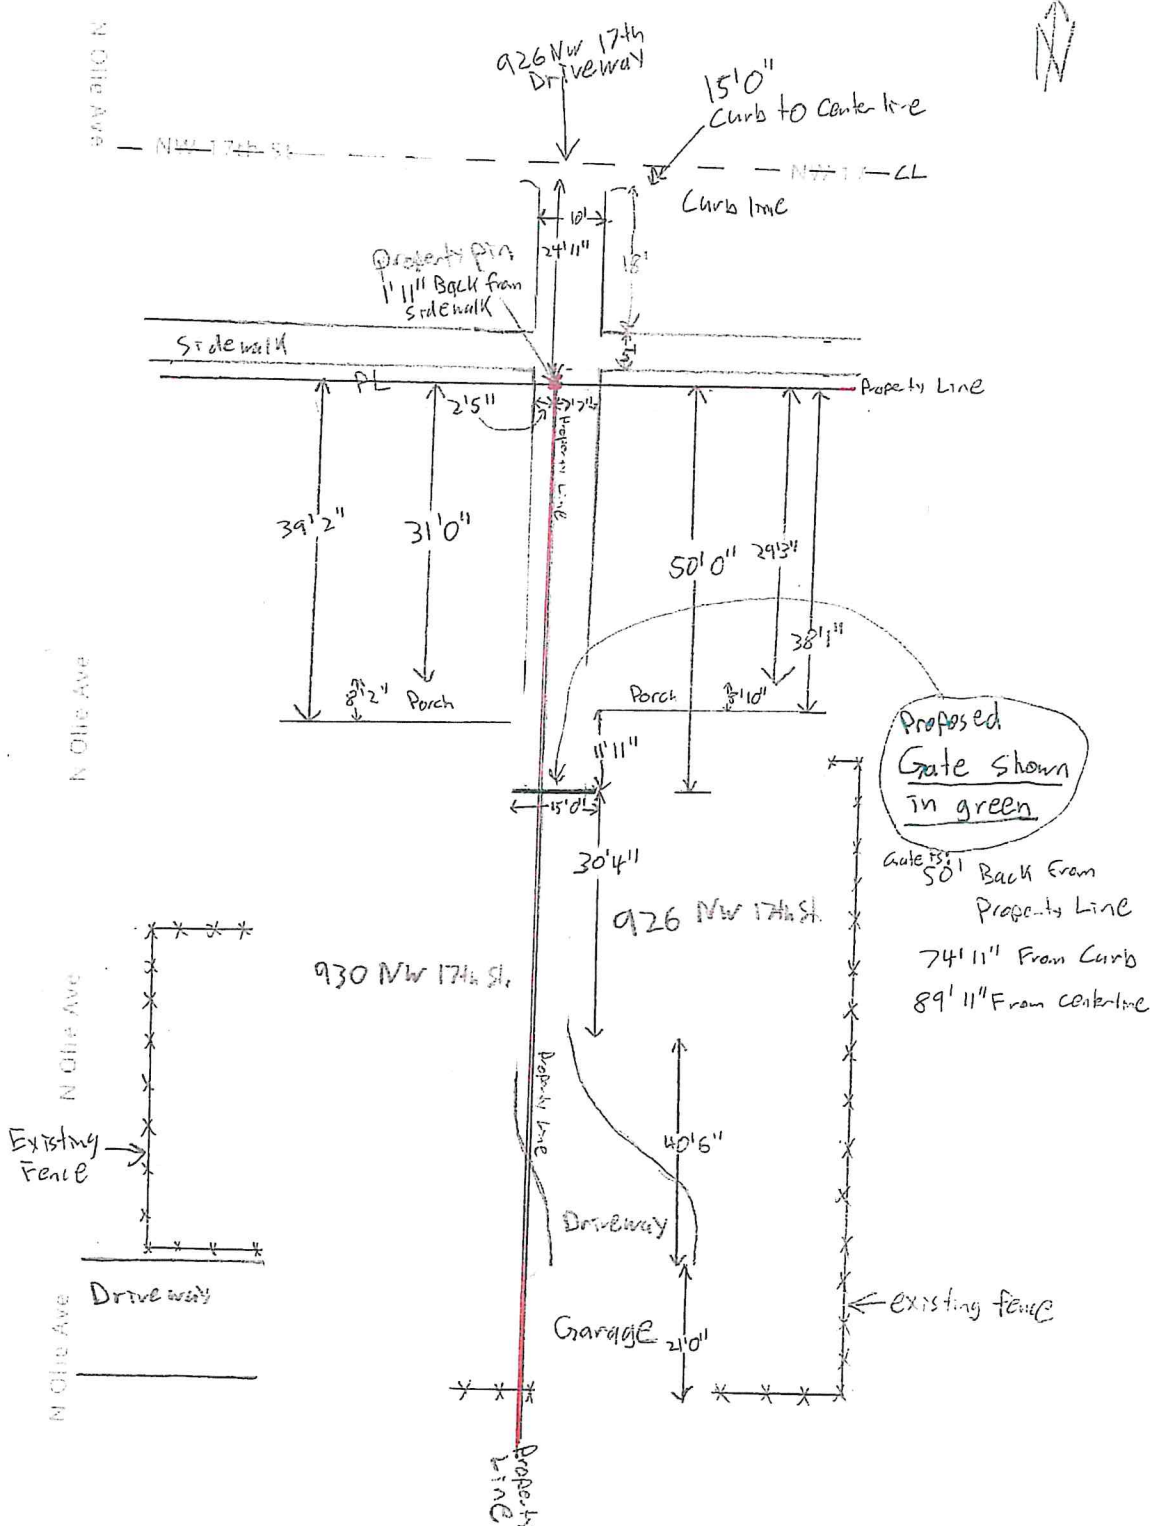 N Olie Ave
926 NW 17th
Driveway
15'0"
Curb to Center line
NW 17th St
NW 17
CL
Curb line
10'
24'11"
18'
Property pin
1'11" Back from
sidewalk
Sidewalk
5'
PL
Property Line
2'5"
7'7"
Property Line
39'2"
31'0"
50'0"
29'3"
38'1"
8'2"
Porch
Porch
8'10"
N Olie Ave
11'11"
Proposed
Gate Shown
in green
15'0"
30'4"
Gate is:
50' Back From
Property Line
74'11" From Curb
89'11" From centerline
926 NW 17th St.
930 NW 17th St.
N Olie Ave
Property Line
Existing
Fence
40'6"
Driveway
Driveway
existing fence
Garage
21'0"
N Olie Ave
Property
Line